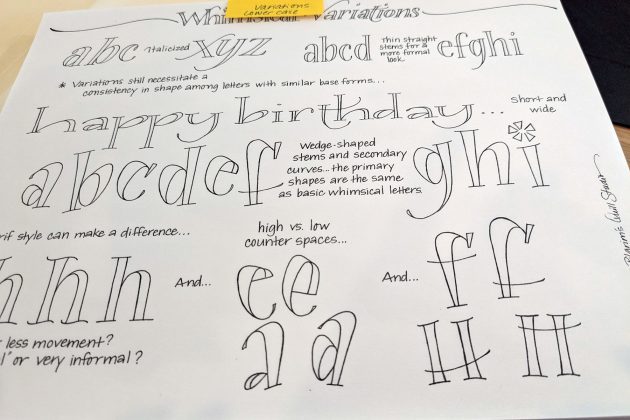 Whimsical Variations
Variations
Lower case
abc Italicized xyz abcd Thin straight stems for a more formal look. efghi
* Variations still necessitate a
consistency in shape among letters with similar base forms...
happy birthday... Short and wide
abcdef Wedge-shaped stems and secondary curves... the primary shapes are the same as basic whimsical letters. ghi
rif style can make a difference...
high vs. low
counter spaces...
hhh And... ee And... ff
less movement?
l" or very informal?
aa HH
Pilgrim's Quill Studio